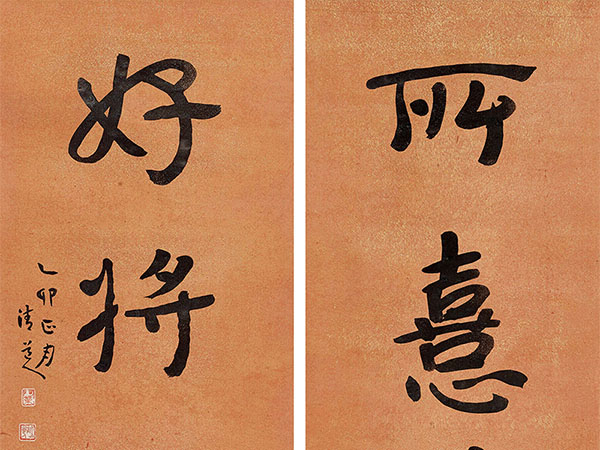 所憙
好將
乙卯正月
清道人